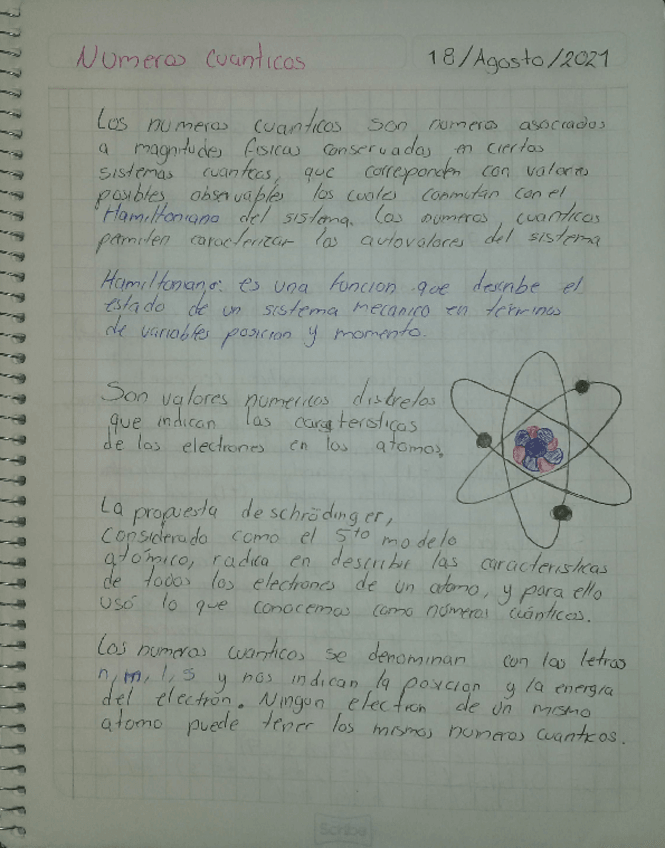 Numeros cuanticos
18/Agosto/2021
Los numeros cuanticos son numeros asociados
a magnitudes fisicas conservadas en ciertos
sistemas cuanticos, que corresponden con valores
posibles observables los cuales conmutan con el
Hamiltoniano del sistema. Los numeros cuanticos
permiten caracterizar los autovalores del sistema
Hamiltoniano: es una funcion que describe el
estado de un sistema mecánico en términos
de variables posicion y momento.
Son valores numericos discretos
que indican las caracteristicas
de los electrones en los atomos.
La propuesta de schrödinger,
considerado como el 5to modelo
atómico, radica en describir las caracteristicas
de todos los electrones de un atomo, y para ello
usó lo que conocemos como números cuánticos.
Los numeros cuanticos se denominan con las letras
n, m, l, s y nos indican la posicion y la energia
del electrón. Ningun electron de un mismo
atomo puede tener los mismos numeros cuanticos.
Scribe